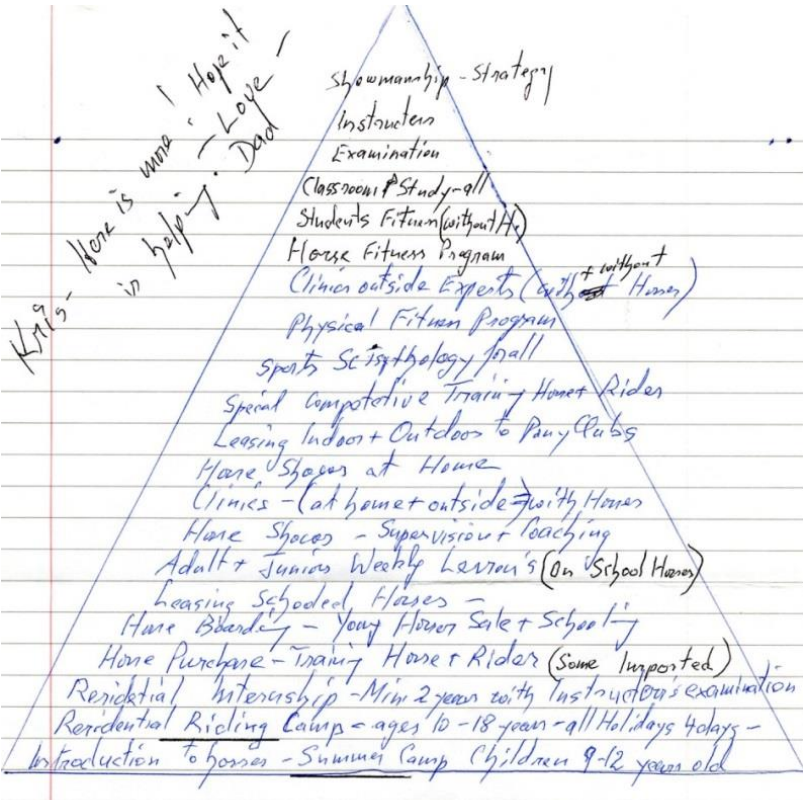 Kris - Here is more! Hope it
is helping. - Love -
Dad
Showmanship - Strategy
Instructors
Examination
Classroom Study - all
Students Fitness (without H.)
Horse Fitness Program
Clinics outside Experts (with + without Horses)
Physical Fitness Program
Sports for all
Special Competetive Training Horse + Rider
Leasing Indoor + Outdoor to Pony Clubs
Horse Shows at Home
Clinics - (at home + outside) with Horses
Horse Shows - Supervision + Coaching
Adult + Juniors Weekly Lesson's (on School Horses)
Leasing Schooled Horses -
Horse Boarding - Young Horses Sale + Schooling
Horse Purchase - Training Horse + Rider (Some Imported)
Residetial Internship - Mini 2 years with Instructor's examination
Residential Riding Camp - ages 10 - 18 years - all Holidays 4 days -
Introduction to horses - Summer Camp Children 9-12 years old